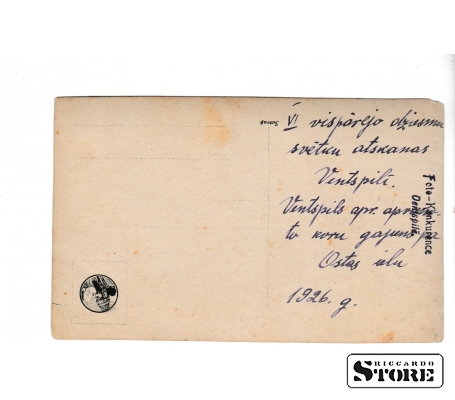 VI vispārējo dziesmu
svētku atskaņas
Ventspilī.
Ventspils apr. apv
to koru gājums pa
Ostas ielu
1926. g.
Foto-Konkurence
Ventspilī
RICCARDO
STORE